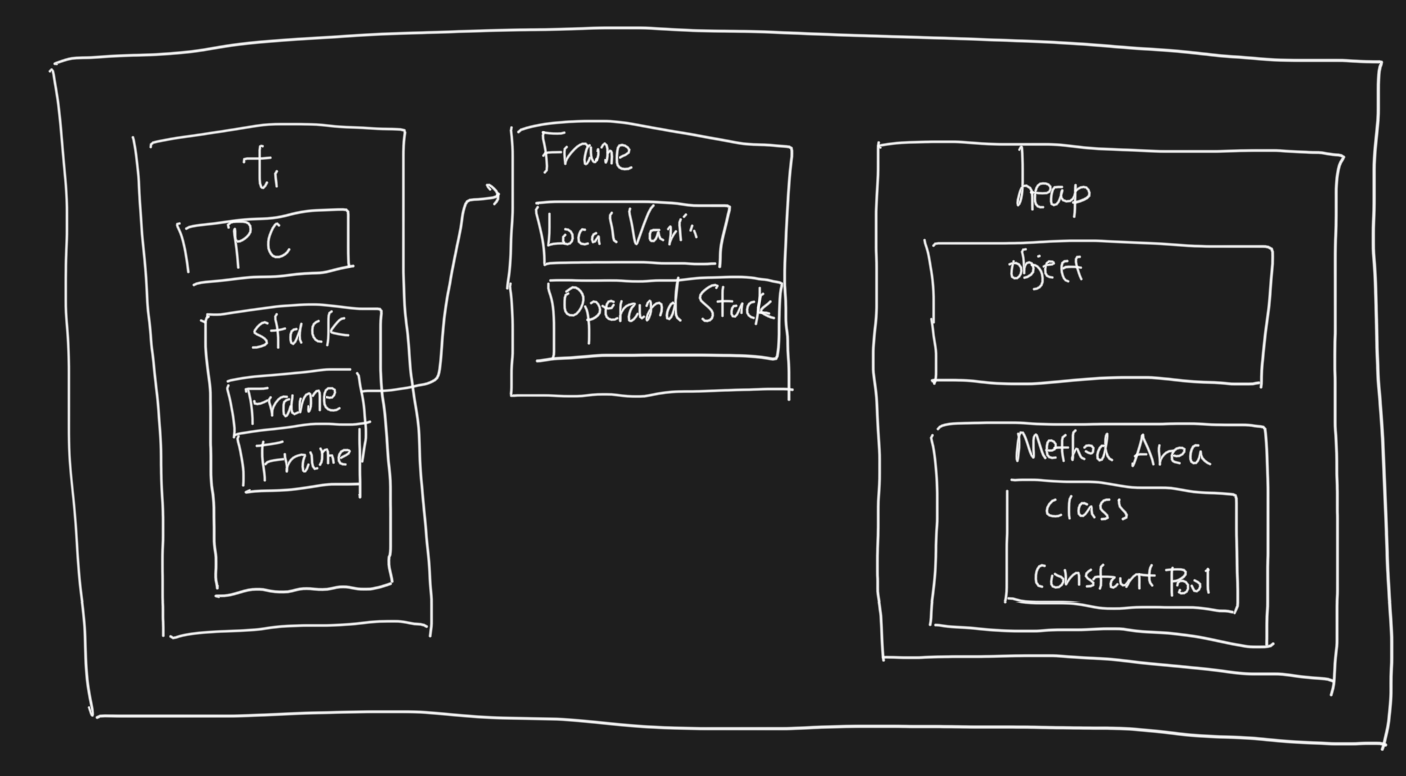 t1
PC
stack
Frame
Frame
Frame
Local Vari
Operand Stack
heap
object
Method Area
class
Constant Pool